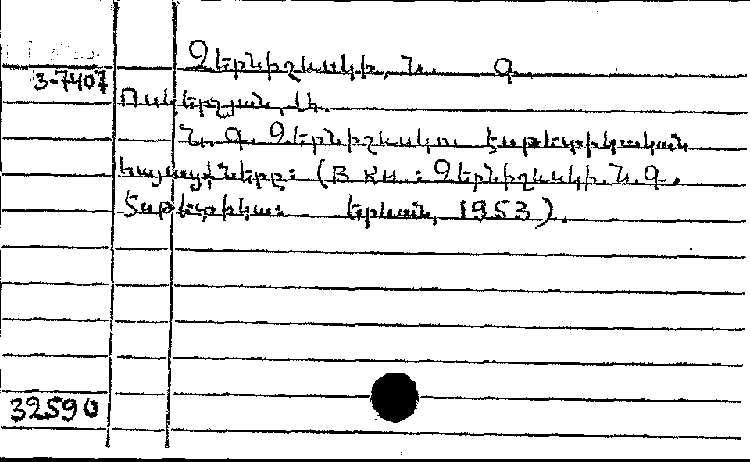 Չերնիշևսկի, Ն. Գ.
3-7407
Ոսկերչյան, Ա.
Ն. Գ. Չերնիշևսկու էսթետիկական
հայացքները: (В кн.: Չերնիշևսկի Ն. Գ.
Էսթետիկա: Երևան, 1953).
32590